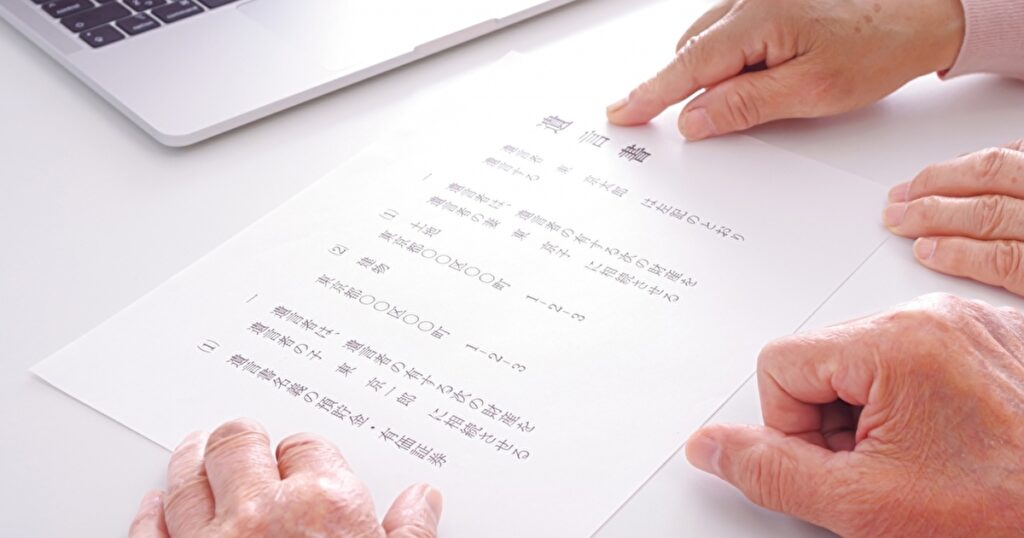 遺言書
遺言者 東 京太郎 は左記のとおり
遺言する
一 遺言者は、遺言者の有する次の財産を
遺言者の妻 東 京子 に相続させる
(1) 土地
東京都〇〇区〇〇町 1-2-3
(2) 建物
東京都〇〇区〇〇町 1-2-3
一 遺言者は、遺言者の有する次の財産を
遺言者の子 東 京一郎 に相続させる
(1) 遺言書名義の預貯金・有価証券